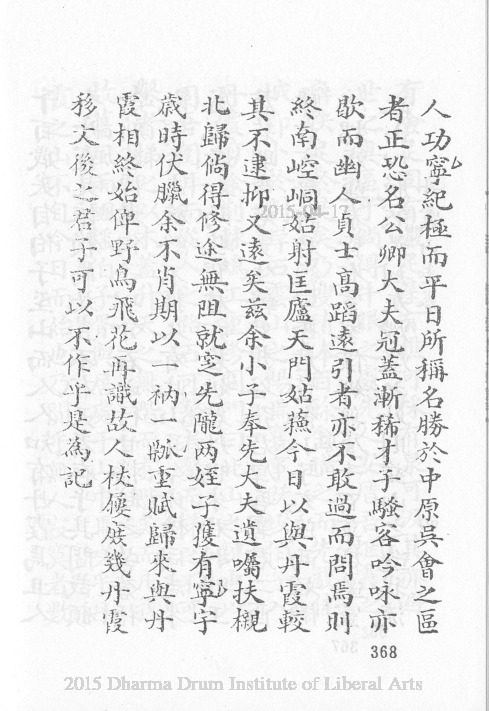 人功寧紀極而平日所稱名勝於中原吳會之區
者正恐名公卿大夫冠蓋漸稀才子騷客吟咏亦
歇而幽人貞士高蹈遠引者亦不敢過而問焉則
終南崆峒姑射匡廬天門姑蘓今日以與丹霞較
其不逮抑又遠矣茲余小子奉先大夫遺囑扶櫬
北歸倘得修途無阻就窆先隴兩姪子獲有寧宇
歲時伏臘余不肖期以一衲一瓢重賦歸來與丹
霞相終始俾野鳥飛花再識故人杖屨庶幾丹霞
移文後之君子可以不作乎是為記
2015-04-17
368
2015 Dharma Drum Institute of Liberal Arts